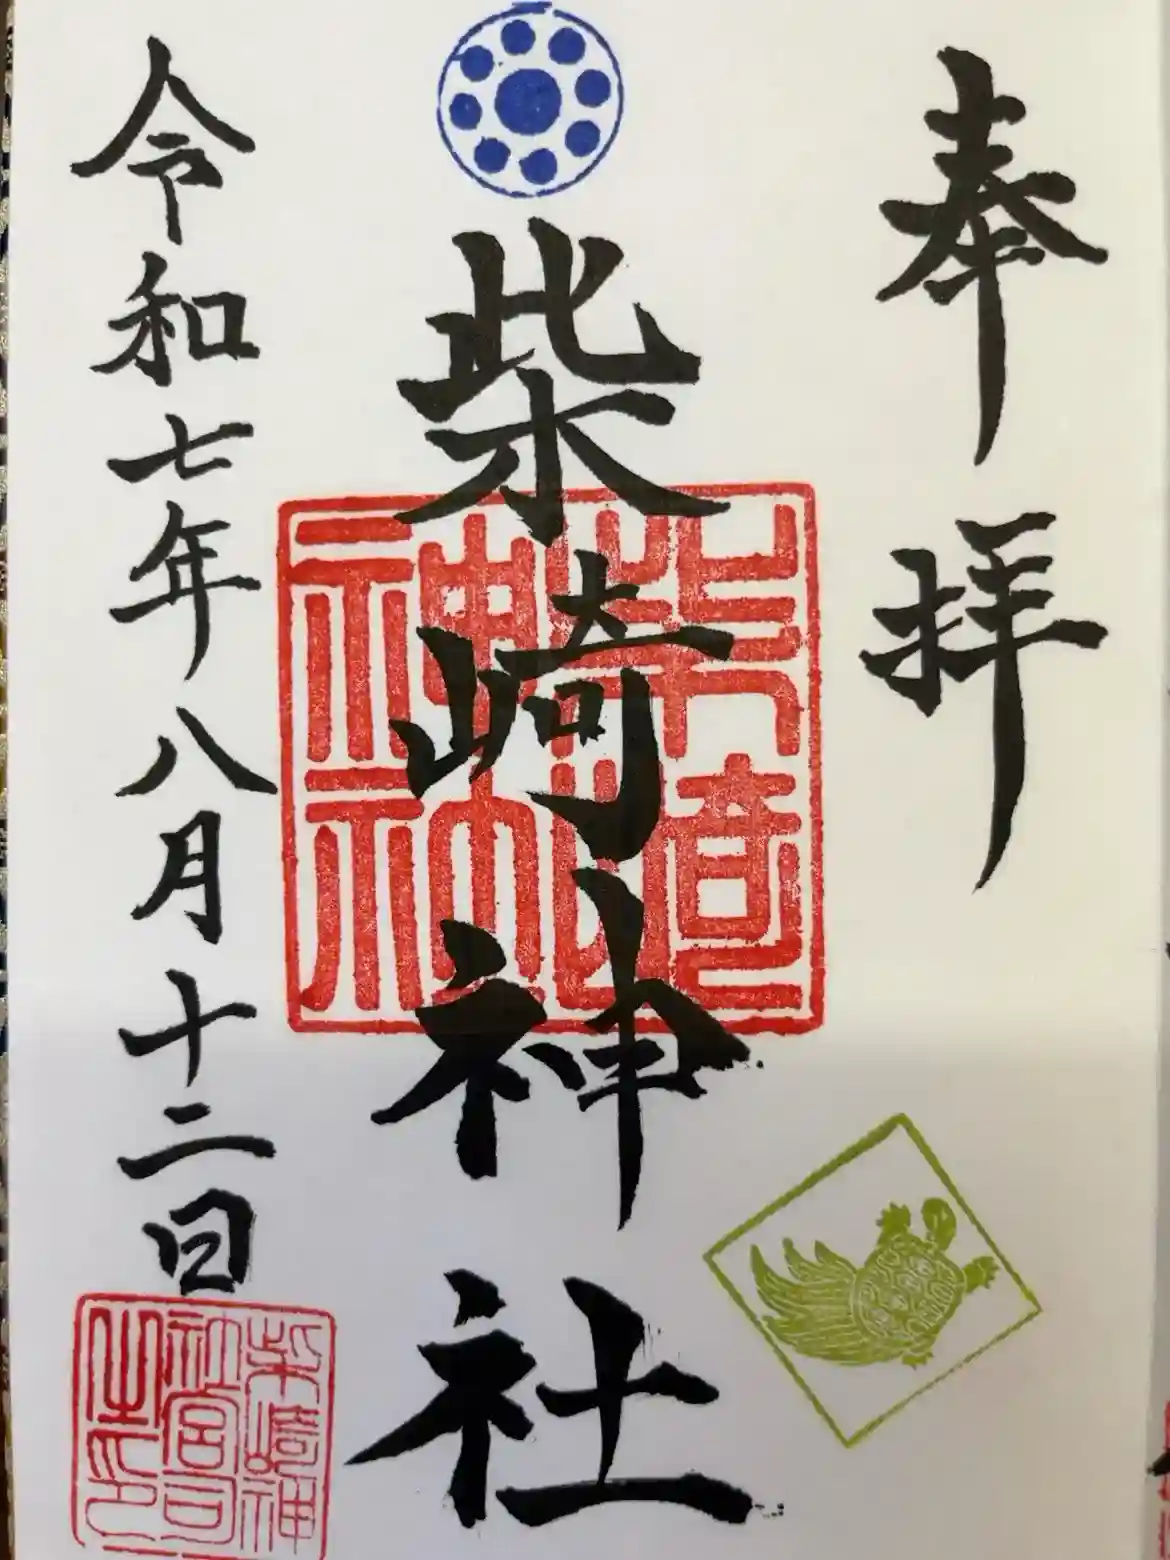 奉拝
柴崎神社
柴崎神社
令和七年八月十二日
柴崎神
社宮司
之印